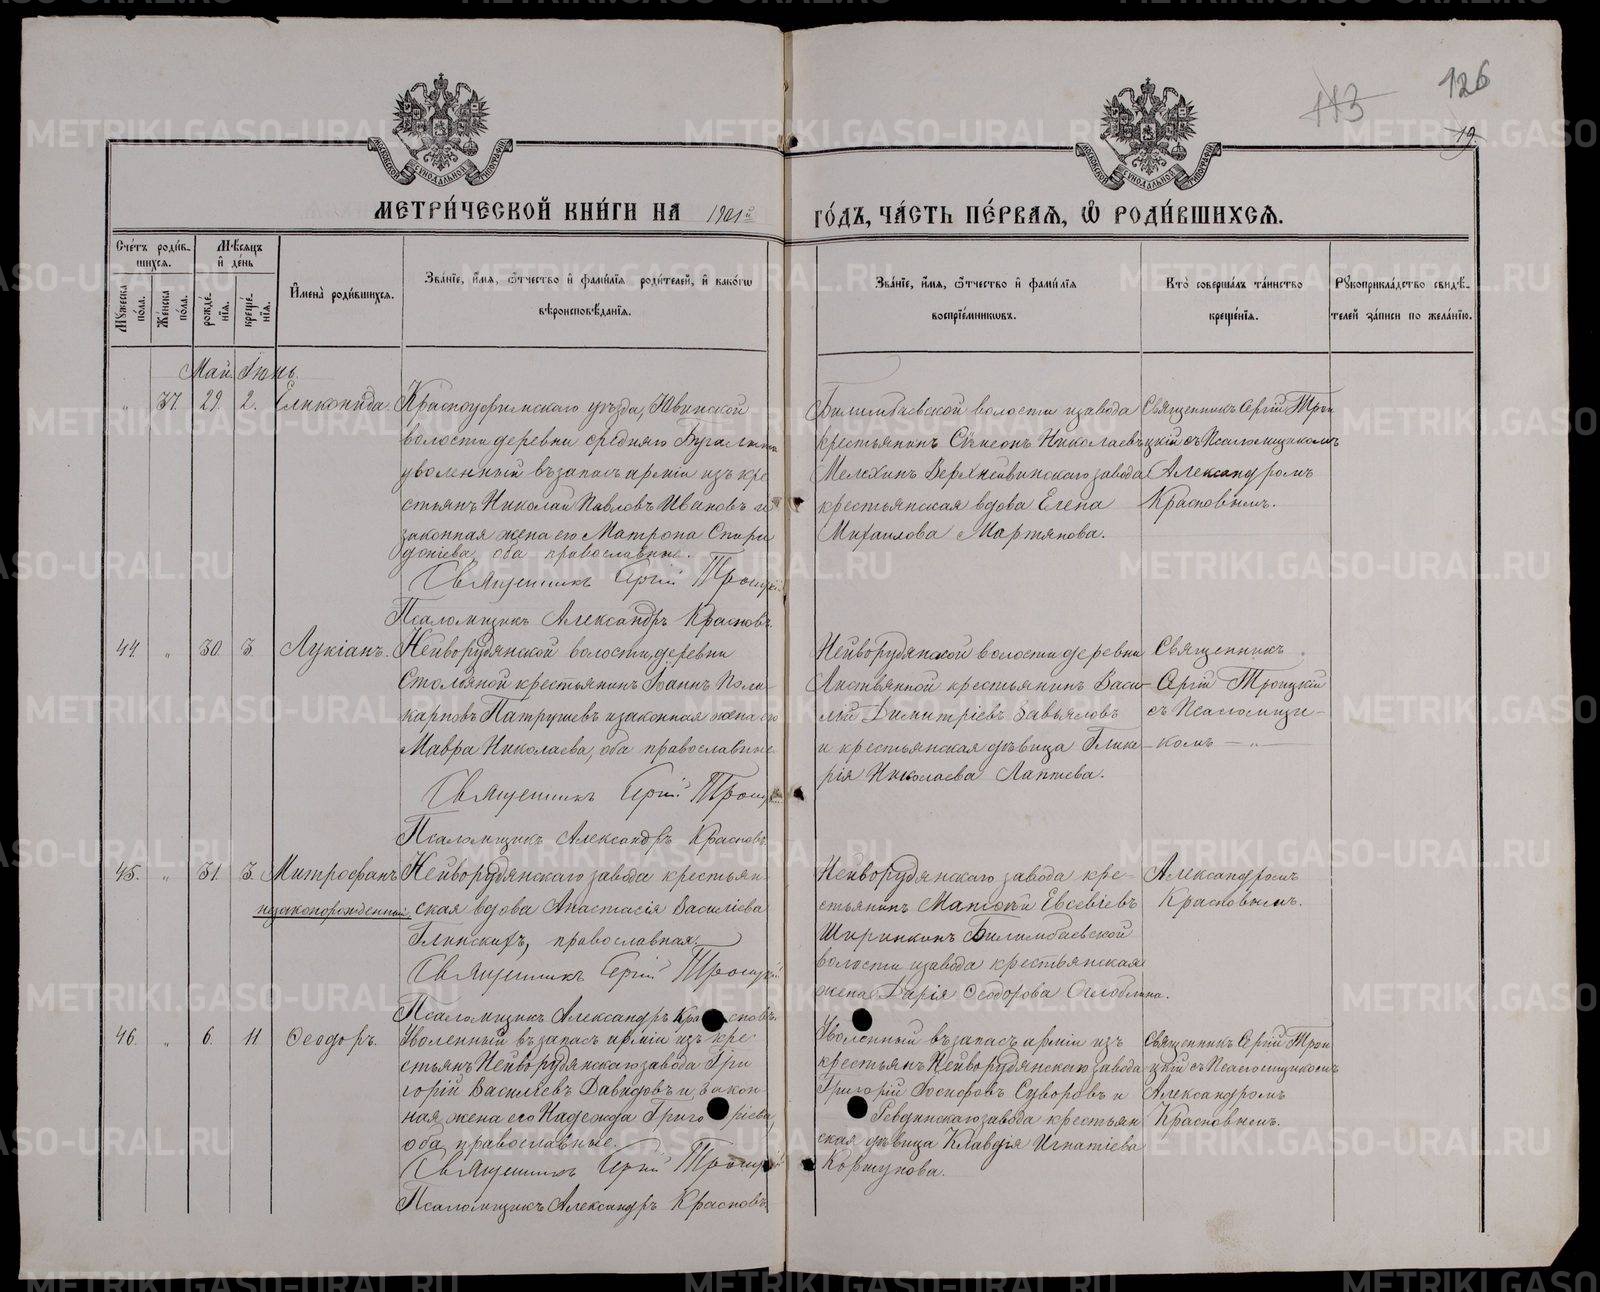 113
126
19.
МОСКОВСКОЙ СѴНОДАЛЬНОЙ ТИПОГРАФІИ
МОСКОВСКОЙ СѴНОДАЛЬНОЙ ТИПОГРАФІИ
МЕТРИ́ЧЕСКОЙ КНИ́ГИ НА 1901й ГО́ДЪ, ЧА́СТЬ ПЕ́РВАЯ, Ѽ РОДИ́ВШИХСѦ.
Сче́тъ роди́в-
шихся.
Мѣ́сяцъ
и҆ де́нь
Мꙋ́жеска по́ла.
Же́нска по́ла.
рожде́нїѧ.
креще́нїѧ.
И҆мена̀ роди́вшихся.
Зва́нїе, и҆́мѧ, ѻ҆́тчество и҆ фами́лїѧ роди́телей, и҆ како́гѡ
вѣроисповѣ́данїѧ.
Зва́нїе, и҆́мѧ, ѻ҆́тчество и҆ фами́лїѧ
воспрїе́мникѡвъ.
Кто̀ соверша́лъ та́инство
креще́нїѧ.
Рꙋкоприкла́дство свидѣ́-
телей за́писи по жела́нїю.
Май. Іюнь.
„ 37. 29. 2. Еликонида.
Красноуфимскаго уѣзда, Ювинской
волости деревни средняго Бугалыша
уволенный въ запасъ арміи изъ кре
стьянъ Николай Павловъ Ивановъ и
законная жена его Матрона Спири
доніева, оба православные.
Священникъ Сергій Троицкій
Псаломщикъ Александръ Красновъ.
Билимбаевской волости и завода
крестьянинъ Симеонъ Николаевъ
Мелехинъ Верхнейвинскаго завода
крестьянская вдова Елена
Михаилова Мартянова.
Священникъ Сергій Трои
цкій съ Псаломщикомъ
Александромъ
Красновымъ.
44. „ 30. 3. Лукіанъ.
Нейворудянской волости, деревни
Столбяной крестьянинъ Іоаннъ Поли
карповъ Патрушевъ и законная жена его
Мавра Николаева, оба православные
Священникъ Сергій Троицкій
Псаломщикъ Александръ Красновъ.
Нейворудянской волости деревни
Листвянной крестьянинъ Васи-
лій Димитріевъ Завьяловъ
и крестьянская дѣвица Глике-
рія Николаева Лаптева.
Священникъ
Сергій Троицкій
съ Псаломщи-
комъ — „ —
45. „ 31. 3. Митрофанъ
незаконорожденный.
Нейворудянскаго завода крестьян-
ская вдова Анастасія Василіева
Глинскихъ, православная.
Священникъ Сергій Троицкій
Псаломщикъ Александръ Красновъ.
Нейворудянскаго завода кре-
стьянинъ Матѳей Евсевіевъ
Ширинкинъ Билимбаевской
волости и завода крестьянская
жена Дарія Ѳеодорова Оглоблина.
Александромъ
Красновымъ.
46. „ 6. 11 Ѳеодоръ.
Уволенный въ запасъ арміи изъ кре-
стьянъ Нейворудянскаго завода Гри
горій Василіевъ Давыдовъ и закон
ная жена его Надежда Григоріева,
оба православные.
Священникъ Сергій Троицкій
Псаломщикъ Александръ Красновъ
Уволенный въ запасъ арміи изъ
крестьянъ Нейворудянскаго завода
Григорій Іосифовъ Суворовъ и
Ревдинскаго завода крестьян
ская дѣвица Клавдія Игнатіева
Коршунова.
Священникъ Сергій Трои
цкій съ Псаломщикомъ
Александромъ
Красновымъ.
METRIKI.GASO-URAL.RU